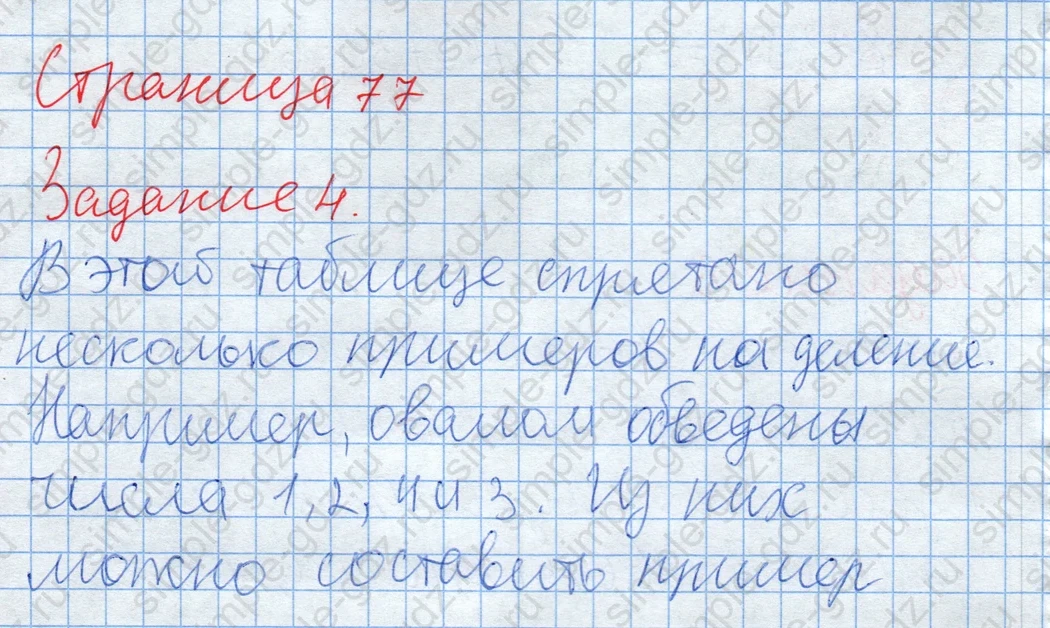 Страница 77
Задание 4.
В этой таблице спрятано
несколько примеров на деление.
Например, овалом обведены
числа 1, 2, 4 и 3. Из них
можно составить пример